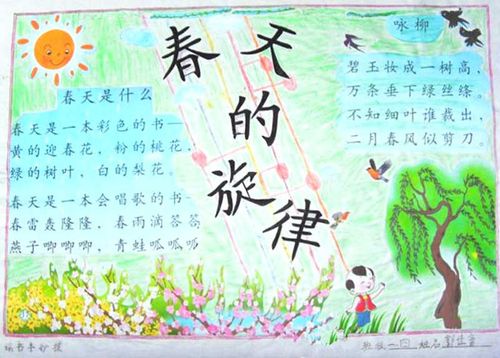 春天的旋律
春天是什么
春天是一本彩色的书—
黄的迎春花，粉的桃花，
绿的树叶，白的梨花。
春天是一本会唱歌的书—
春雷轰隆隆，春雨滴答答
燕子唧唧唧，青蛙呱呱呱
咏柳
碧玉妆成一树高，
万条垂下绿丝绦。
不知细叶谁裁出，
二月春风似剪刀。
班级一四 姓名